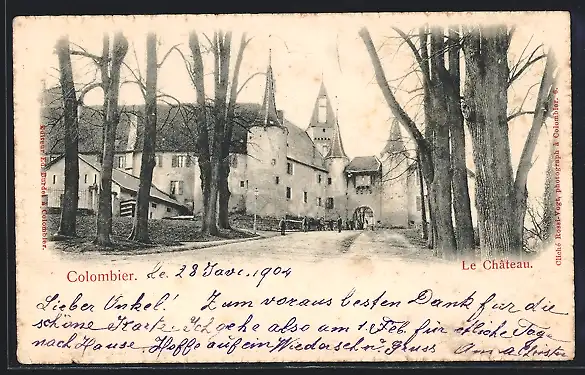 Colombier. Le 28 Janv. 1904
Le Château.
Lieber Onkel! Zum voraus besten Dank für die
schöne Karte. Ich gehe also am 1. Feb. für etliche Tage
nach Hause. Hoffe auf ein Wiedersehn u. Gruss
Cliché Rossi-Vogt, photograph à Colombier.